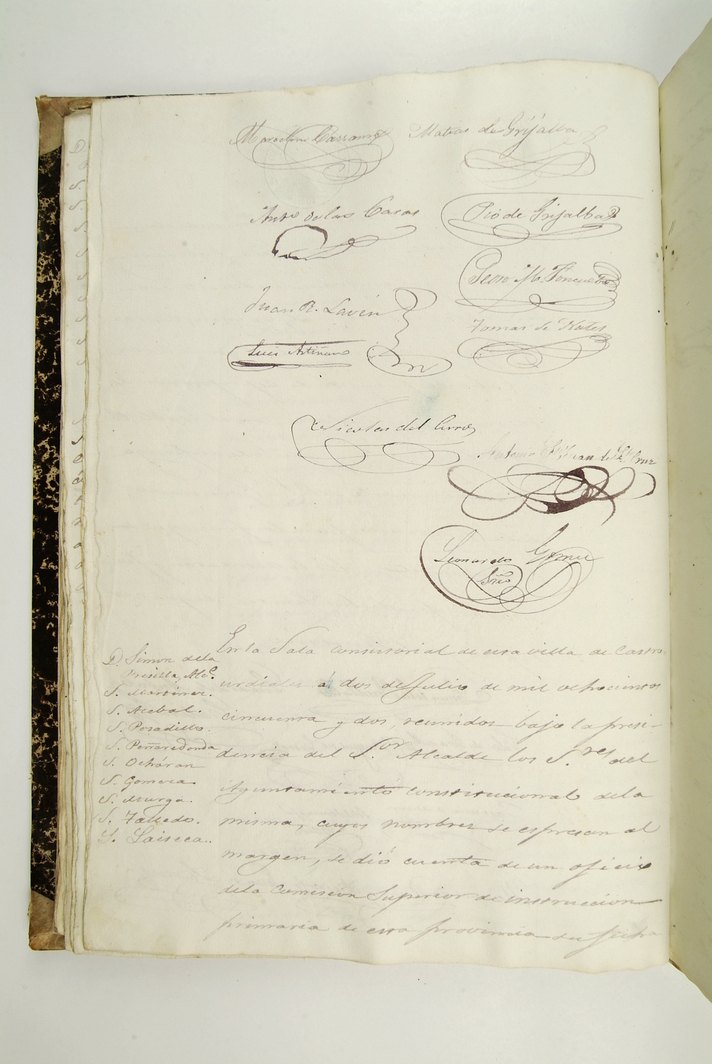 Mateo de Grijalba
Antº de las Casas
Pio de Grijalba
Juan R. Lavin
Tomas de Nates
Luis Artiñano
Nicolas del Cerro
Antonio Juan de la Cruz
Leonardo
Srio
D. Simon de la
Alc.
S. Martinez.
S. Acebal.
S. Posadillo.
S. Peñaredonda
S. Ocháran
S. Gomera
S.
S. Talledo.
S. Laiseca.
En la Sala consistorial de esta villa de Castro
urdiales a dos de Julio de mil ochocientos
cincuenta y dos, reunidos bajo la presi-
dencia del S.or Alcalde los S.res del
Ayuntamiento constitucional de la
misma, cuyos nombres se espresan al
margen, se dió cuenta de un oficio
de la Comision Superior de instruccion
primaria de esta provincia su fecha